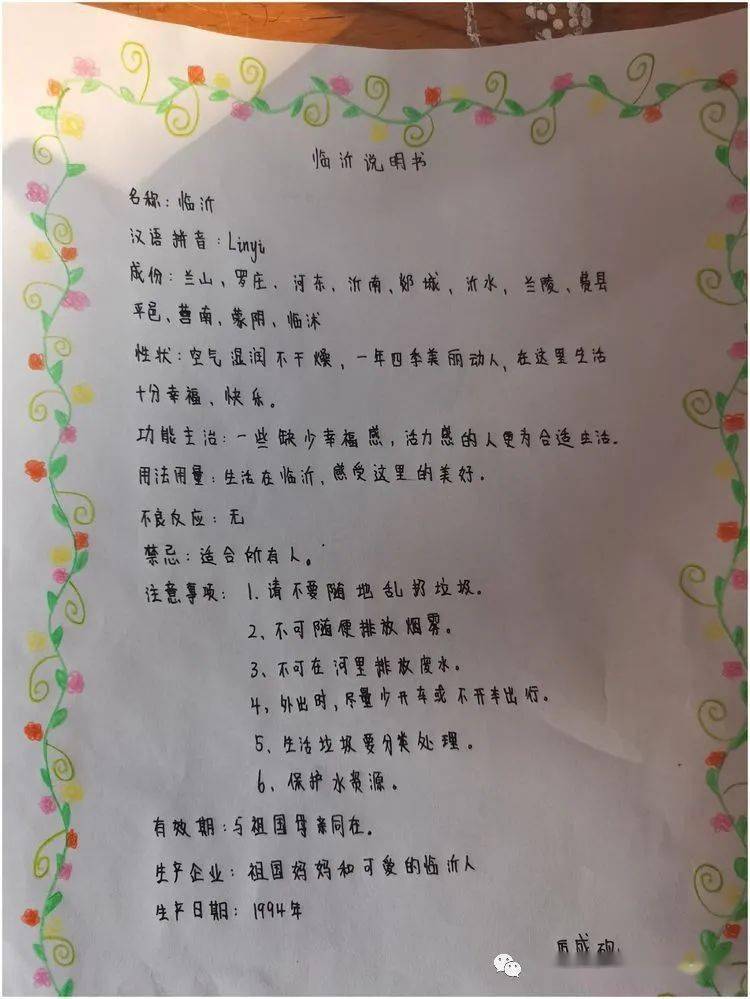 临沂说明书
名称：临沂
汉语拼音：Linyi
成份：兰山、罗庄、河东、沂南、郯城、沂水、兰陵、费县
平邑、莒南、蒙阴、临沭
性状：空气湿润不干燥，一年四季美丽动人，在这里生活
十分幸福、快乐。
功能主治：一些缺少幸福感，活力感的人更为合适生活。
用法用量：生活在临沂，感受这里的美好。
不良反应：无
禁忌：适合所有人。
注意事项：1.请不要随地乱扔垃圾。
2、不可随便排放烟雾。
3、不可在河里排放废水。
4、外出时，尽量少开车或不开车出行。
5、生活垃圾要分类处理。
6、保护水资源。
有效期：与祖国母亲同在。
生产企业：祖国妈妈和可爱的临沂人
生产日期：1994年